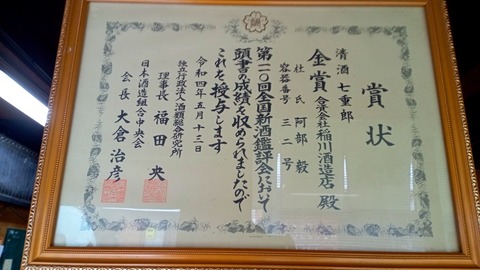 賞状
清酒 七重郎
金賞 合資会社稲川酒造店 殿
杜氏 阿部 毅
容器番号 三二号
第一一〇回全国新酒鑑評会において
頭書の成績を収められましたので
これを授与します
令和四年五月十二日
独立行政法人酒類総合研究所
理事長 福田 央
日本酒造組合中央会
会長 大倉治彦